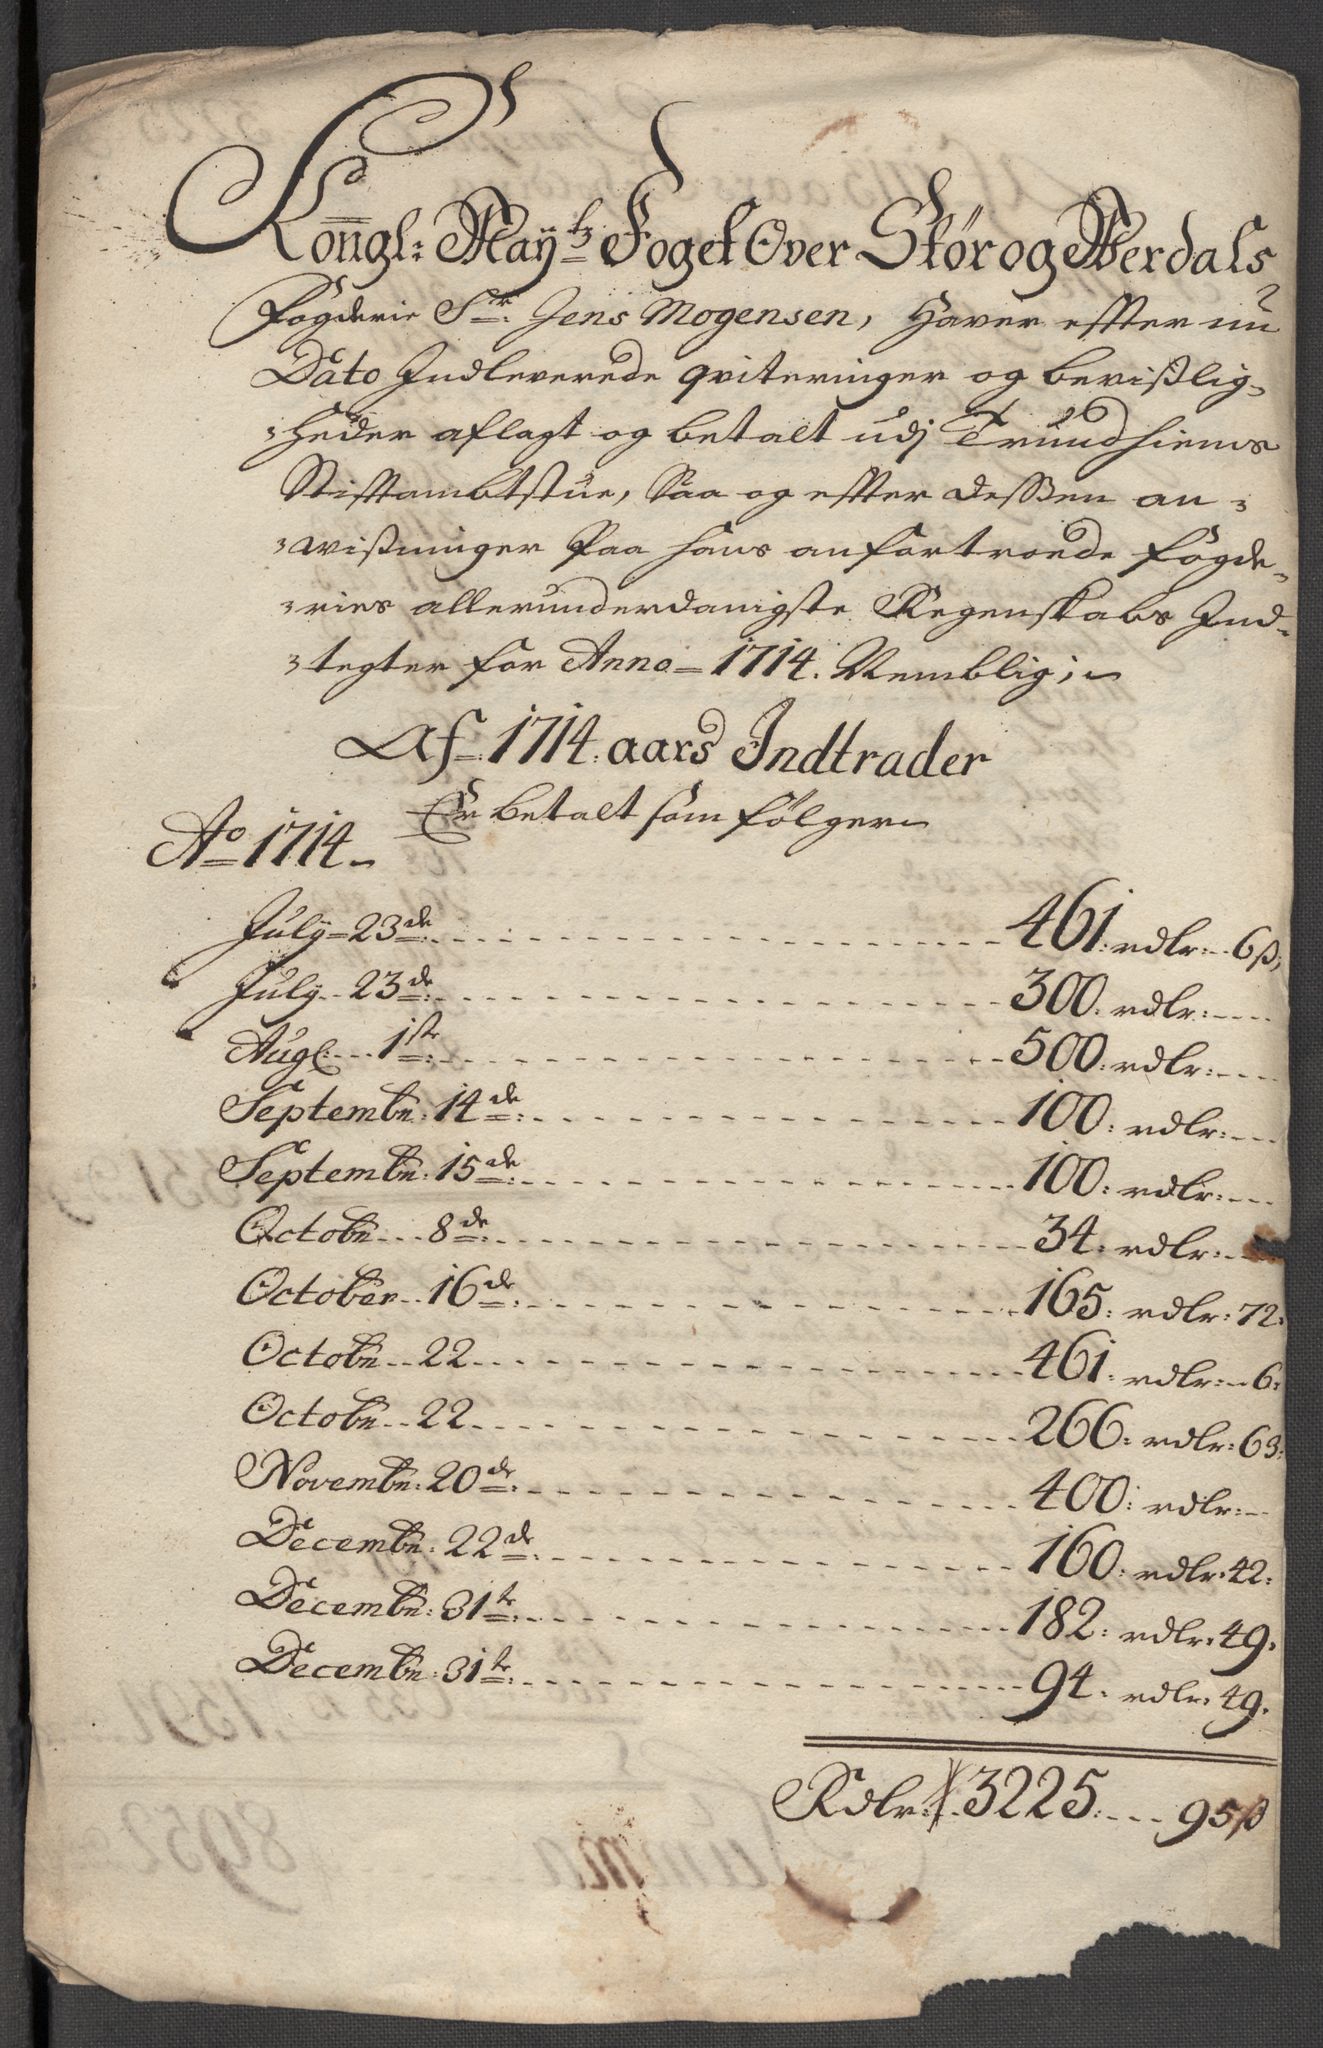 Kongl: Maÿtz Foget Over Stør og Werdals
Fogderie Sr: Jens Mogensen, Haver effter nu
Dato Indleverede qviteringer og bevißlig-
heder aflagt og betalt udj Trundhiems
Stifftambtstue, Saa og effter deßen an-
wißninger Paa hans anfortroede fogde-
ries allerunderdanigste Regenskabs Ind-
tegter for Anno 1714. Nemblig;
Af 1714. aars Indtrader
Er betalt som følger
Ao 1714
July 23de: 461: rdlr: 6ß;
July 23de: 300: rdlr:
Aug: 1ste: 500: rdlr:
Septembr: 14de: 100: rdlr:
Septembr: 15de: 100: rdlr:
Octobr 8de: 34: rdlr:
October 16de: 165: rdlr: 72:
Octobr 22 461: rdlr: 6:
Octobr 22 266: rdlr: 63:
Novembr: 20de: 400: rdlr:
Decembr: 22de: 160: rdlr: 42:
Decembr: 31te: 182: rdlr: 49.
Decembr: 31te: 94: rdlr: 49.
Rdlr: 3225: 95ß